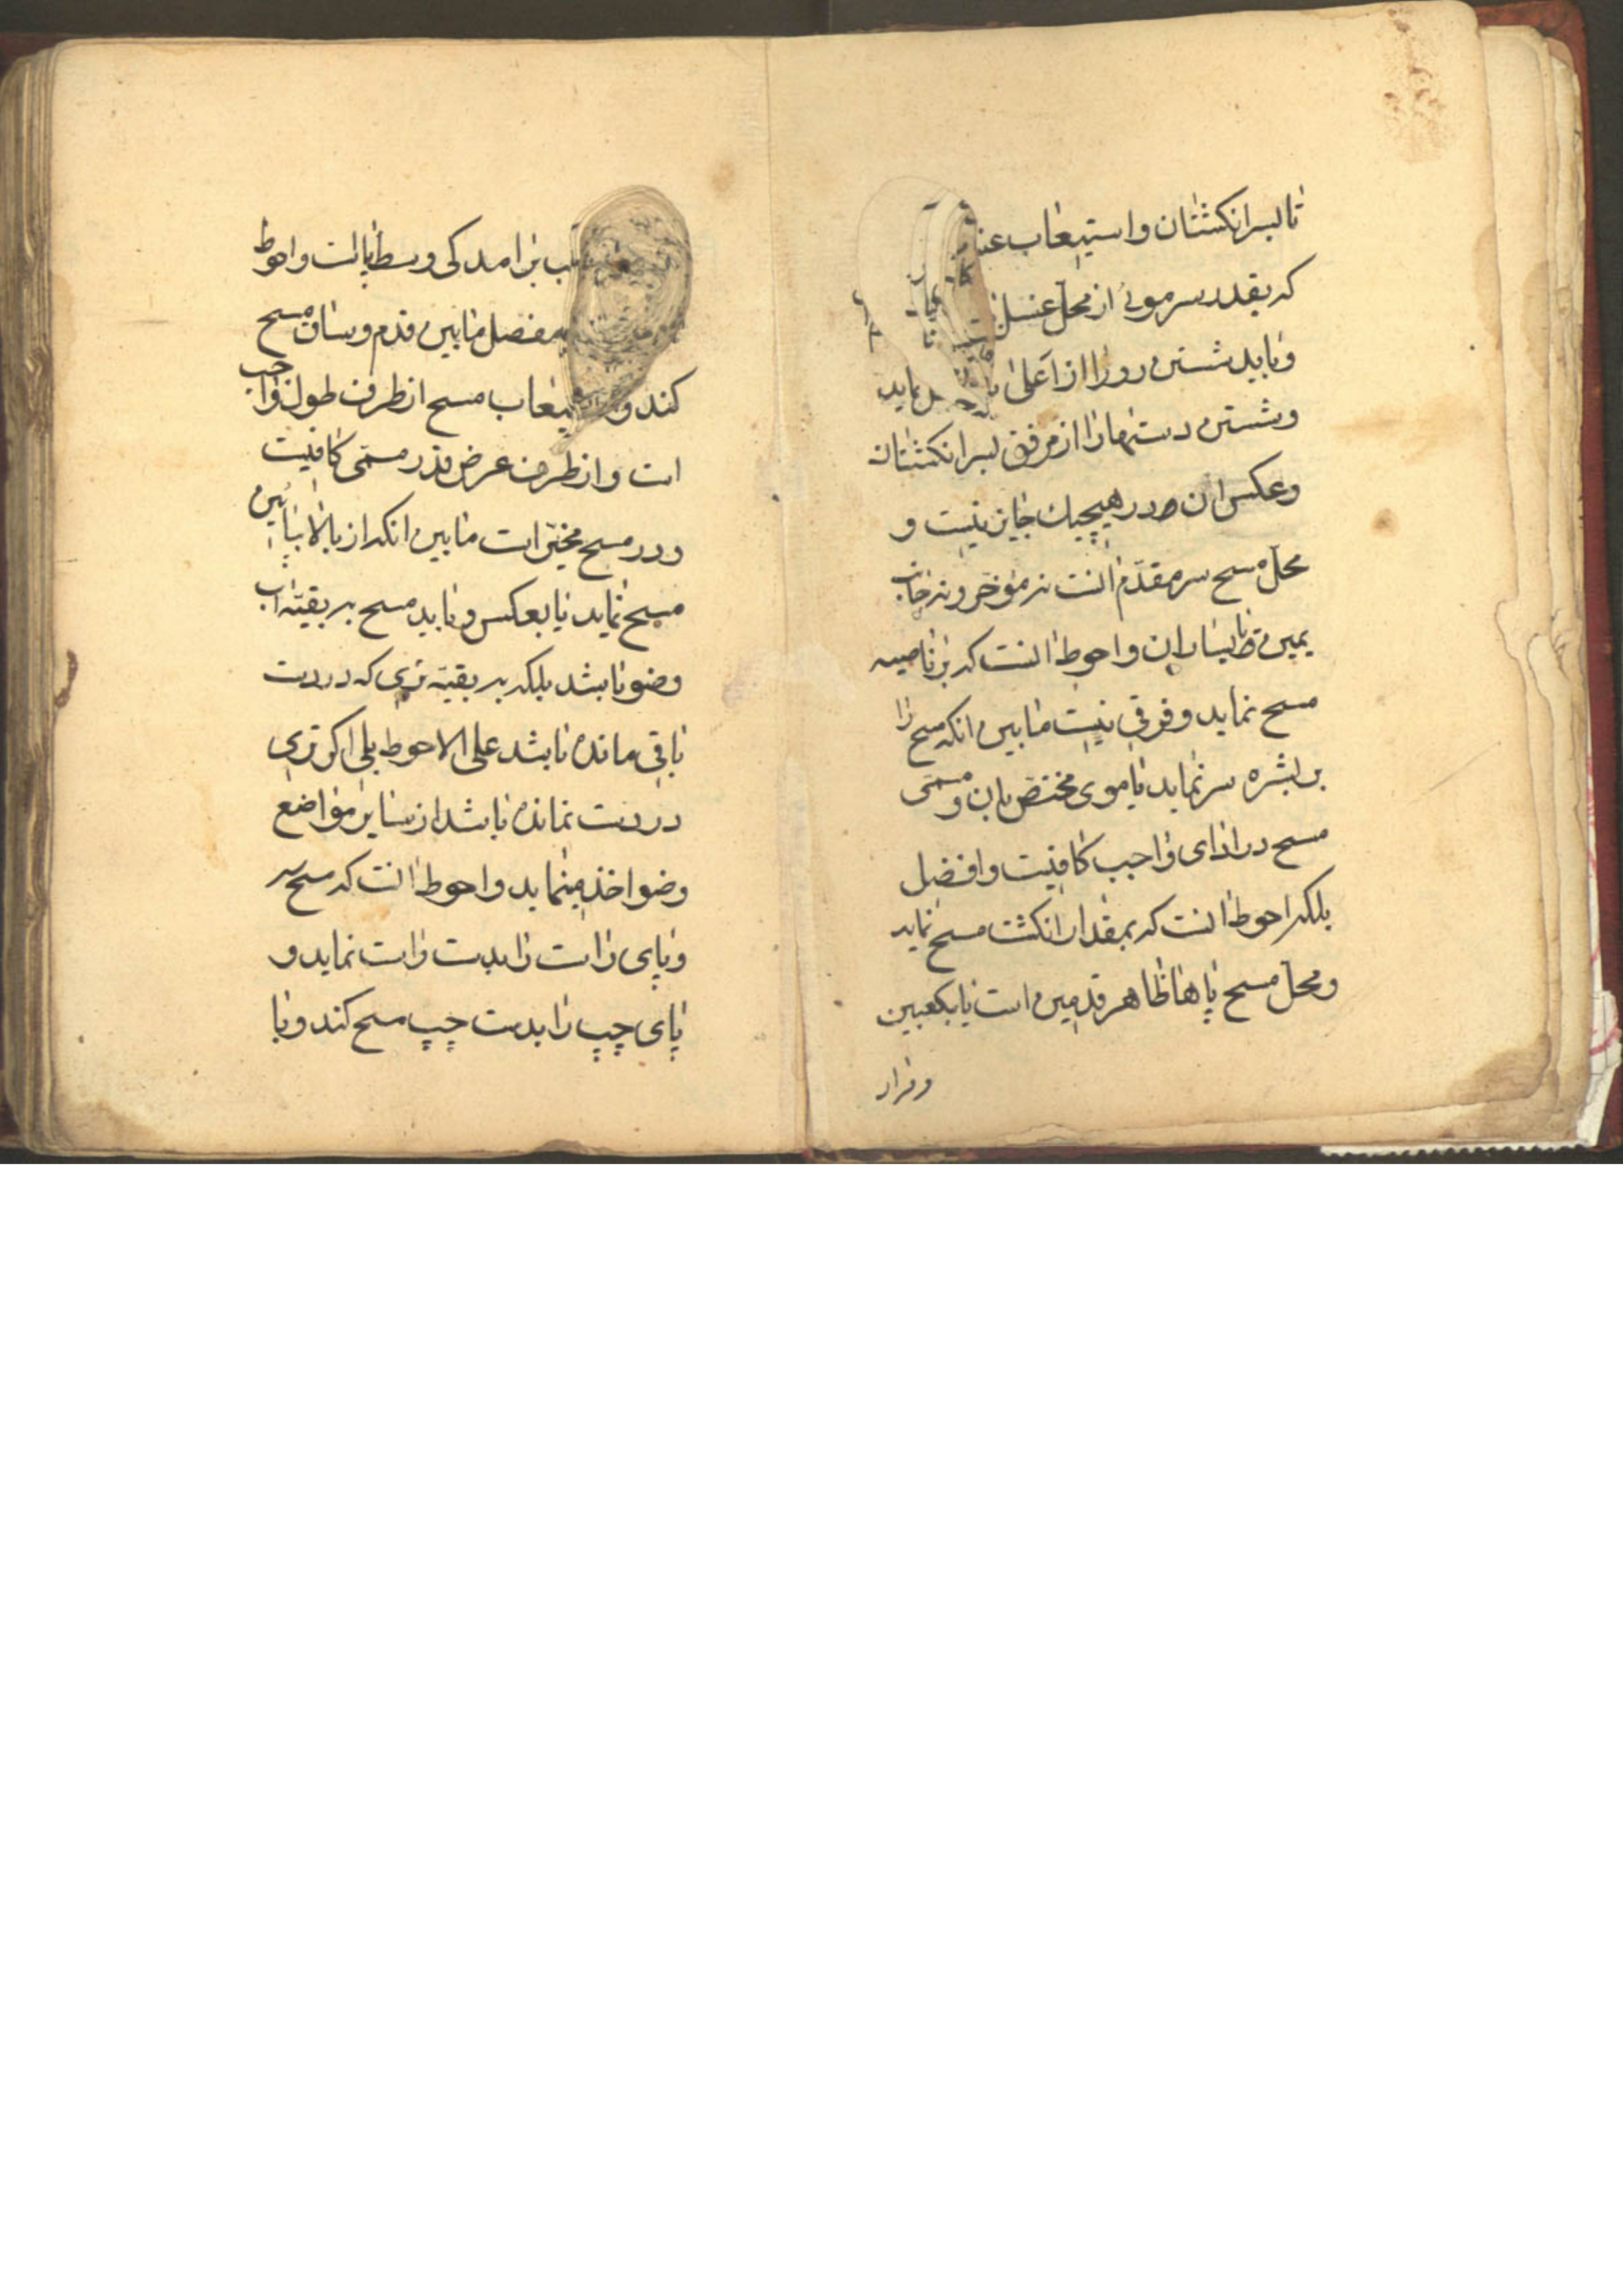 تا بسر انکشتان و استیعاب
که بقدر سر موئی از محل غسل
و باید شستن رو را از اعلی نماید
و شستن دستها را از مرفق بسر انکشتان
و عکس ان در هیچیك جایز نیست و
محل مسح سر مقدم انست نه مؤخر و نه جانب
یمین و یسار ان و احوط انست که بر ناصیه
مسح نماید و فرقی نیست مابین انکه مسح را
بر بشره سر نماید یا موی مختص بان و مسمی
مسح در ادای واجب کافیست و افضل
بلکه احوط انست که بمقدار انکشت مسح نماید
و محل مسح پاها ظاهر قدمین است تا بکعبین
و قرار
بر امدکی وسط پا است و احوط
مفصل مابین قدم و ساق مسح
کند و مسح از طرف طول واجب
است و از طرف عرض قدر مسمی کافیست
و در مسح مخیر است مابین انکه از بالا بپائین
مسح نماید یا بعکس و باید مسح به بقیه اب
وضو باشد بلکه به بقیه تری که در دست
باقی مانده باشد علی الاحوط بلی اکر تری
در دست نمانده باشد از سایر مواضع
وضو اخذ مینماید و احوط انست که مسح سر
و پای راست را بدست راست نماید و
پای چپ را بدست چپ مسح کند و با